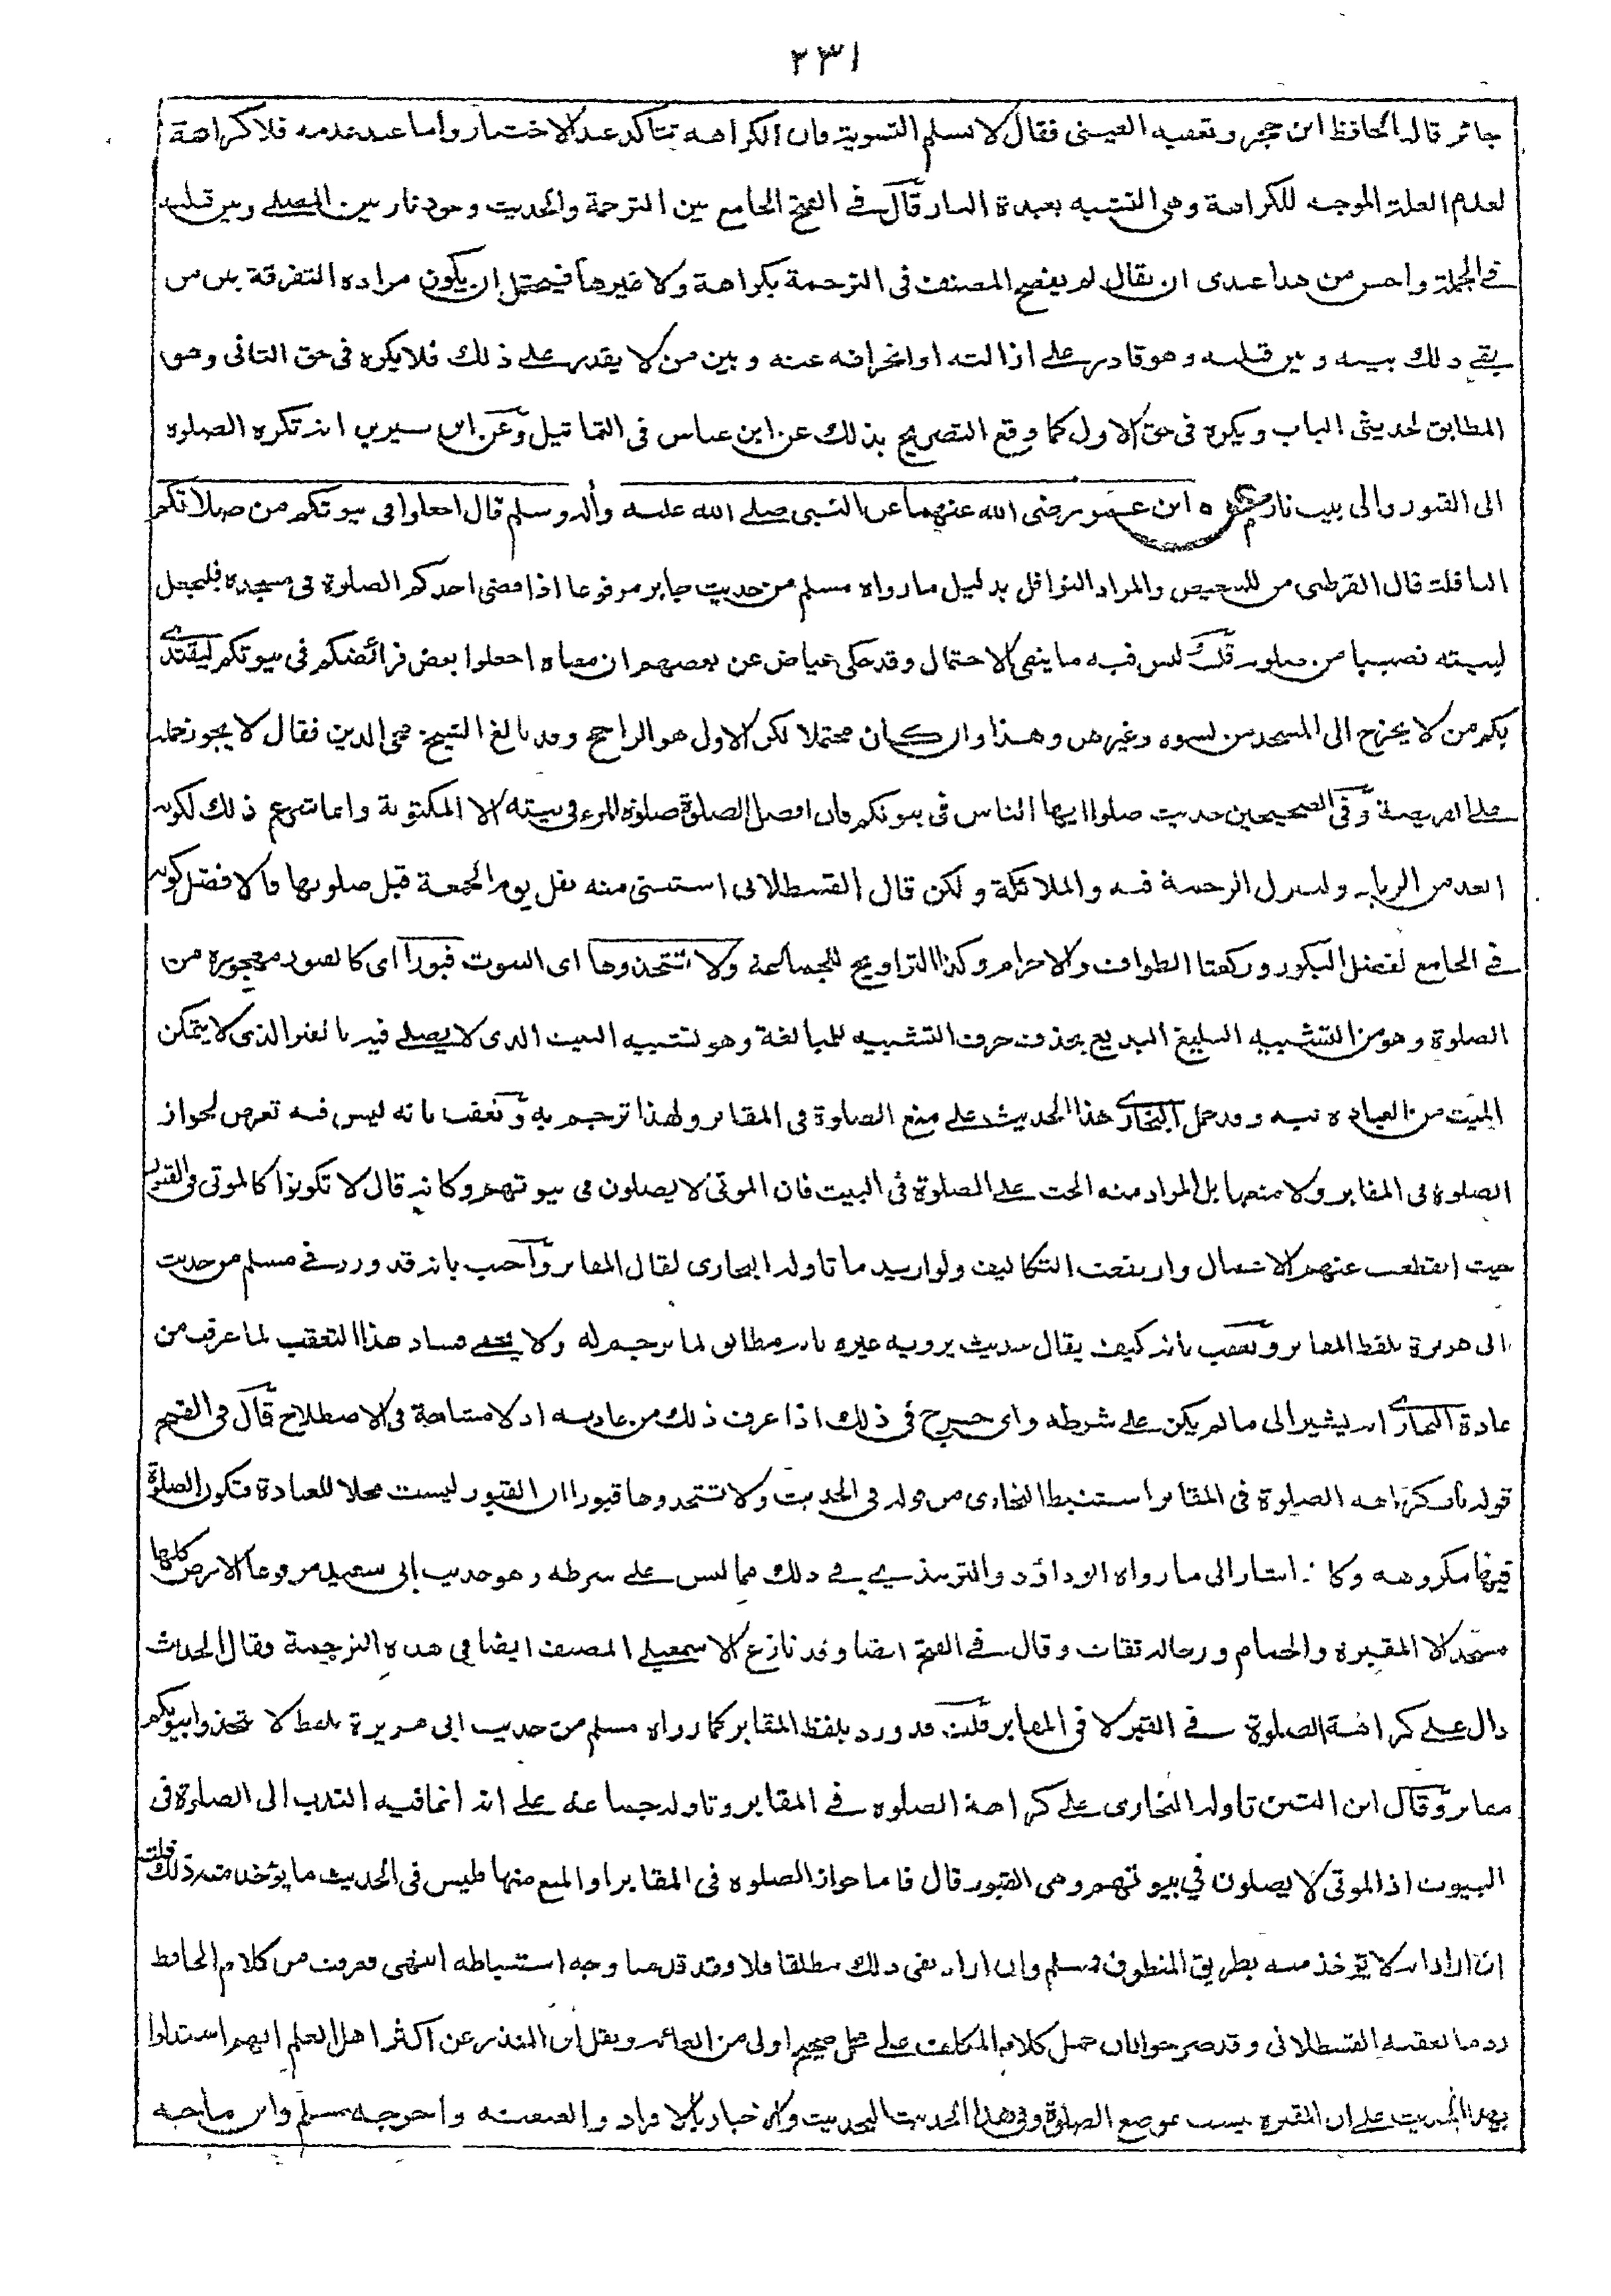 ٢٣١
جائز قاله الحافظ ابن حجر وتعقبه العيني فقال لا نسلم التسوية فان الكراهة تتاكد عند الاختيار واما عند عدمه فلا كراهة
لعدم العلة الموجبة للكراهة وهي التشبه بعبدة النار قال في الفتح الجامع بين الترجمة والحديث وجود نار بين المصلي وبين قبلته
في الجملة واحسن من هذا عندي ان يقال لم يفصح المصنف في الترجمة بكراهة ولا غيرها فيحتمل ان يكون مراده التفرقة بين من
بقي ذلك بينه وبين قبلته وهو قادر على ازالته او انحرافه عنه وبين من لا يقدر على ذلك فلا يكره في حق الثاني وهو
المطابق لحديثي الباب ويكره في حق الاول كما وقع التصريح بذلك عن ابن عباس في التماثيل وعن ابن سيرين انه تكره الصلوة
الى القبور والى بيت نار ابن عمر رضي الله عنهما عن النبي صلى الله عليه وآله وسلم قال اجعلوا في بيوتكم من صلاتكم
النافلة قال القرطبي من للتبعيض والمراد النوافل بدليل ما رواه مسلم من حديث جابر مرفوعا اذا قضى احدكم الصلوة في مسجده فليجعل
لبيته نصيبا من صلوته قلت ليس فيه ما ينفي الاحتمال وقد حكى عياض عن بعضهم ان معناه اجعلوا بعض فرائضكم في بيوتكم ليقتدي
بكم من لا يخرج الى المسجد من نسوه وغيرهن وهذا وان كان محتملا لكن الاول هو الراجح وقد بالغ الشيخ محي الدين فقال لا يجوز حمله
على الفريضة وفي الصحيحين حديث صلوا ايها الناس في بيوتكم فان افضل الصلوة صلوة المرء في بيته الا المكتوبة وانما شرع ذلك لكونه
ابعد من الرياء ولتنزل الرحمة فيه والملائكة ولكن قال القسطلاني استثنى منه نفل يوم الجمعة قبل صلوتها فالافضل كونه
في الجامع لفضل البكور وركعتا الطواف والاحرام وكذا التراويح للجماعة ولا تتخذوها اى البيوت قبورا اى كالقبور مهجورة من
الصلوة وهو من التشبيه البليغ البديع بحذف حرف التشبيه للمبالغة وهو تشبيه البيت الذى لا يصلى فيه بالقبر الذى لا يتمكن
الميت من العبادة فيه وقد حمل البخاري هذا الحديث على منع الصلوة في المقابر ولهذا ترجم به وتعقب بانه ليس فيه تعرض لجواز
الصلوة في المقابر ولا منعها بل المراد منه الحث على الصلوة في البيت فان الموتى لا يصلون في بيوتهم وكانه قال لا تكونوا كالموتى في القبور
حيث انقطعت عنهم الاعمال وارتفعت التكاليف ولو اريد ما تاوله البخارى لقال المقابر وأجيب بانه قد ورد في مسلم من حديث
ابى هريرة بلفظ المقابر وتعقب بانه كيف يقال حديث يرويه غيره بانه مطابق لما ترجم له ولا يخفى فساد هذا التعقب لما عرف من
عادة البخارى انه يشير الى ما لم يكن على شرطه واى حرج في ذلك اذا عرف ذلك من عادته اذ لا مشاحة في الاصطلاح قال في الفتح
قوله باب كراهة الصلوة في المقابر استنبط البخارى من قوله في الحديث ولا تتخذوها قبورا ان القبور ليست محلا للعبادة فتكون الصلوة
فيها مكروهة وكانه اشار الى ما رواه ابو داؤد والترمذي في ذلك مما ليس على شرطه وهو حديث ابى سعيد مرفوعا الارض كلها
مسجد الا المقبرة والحمام ورجاله ثقات وقال في الفتح ايضا وقد نازع الاسمعيلي المصنف ايضا في هذه الترجمة فقال الحديث
دال على كراهة الصلوة في القبر لا في المقابر قلت قد ورد بلفظ المقابر كما رواه مسلم من حديث ابى هريرة بلفظ لا تتخذوا بيوتكم
مقابر وقال ابن التين تاوله البخارى على كراهة الصلوة في المقابر وتاوله جماعة على انه انما فيه الندب الى الصلوة في
البيوت اذ الموتى لا يصلون في بيوتهم وهى القبور قال فاما جواز الصلوة في المقابر او المنع منها فليس في الحديث ما يؤخذ منه ذلك قلت
ان اراد انه لا يؤخذ منه بطريق المنطوق فمسلم وان اراد نفي ذلك مطلقا فلا وقد قدمنا وجه استنباطه انتهى فعرفت من كلام الحافظ
رد ما تعقبه القسطلاني وقد صرحوا بان حمل كلام المكلف على محمل صحيح اولى من الغائه ونقل ابن المنذر عن اكثر اهل العلم انهم استدلوا
بهذا الحديث على ان المقبرة ليست بموضع الصلوة وفي هذا الحديث التحديث والاخبار بالافراد والعنعنة واخرجه مسلم وابن ماجه